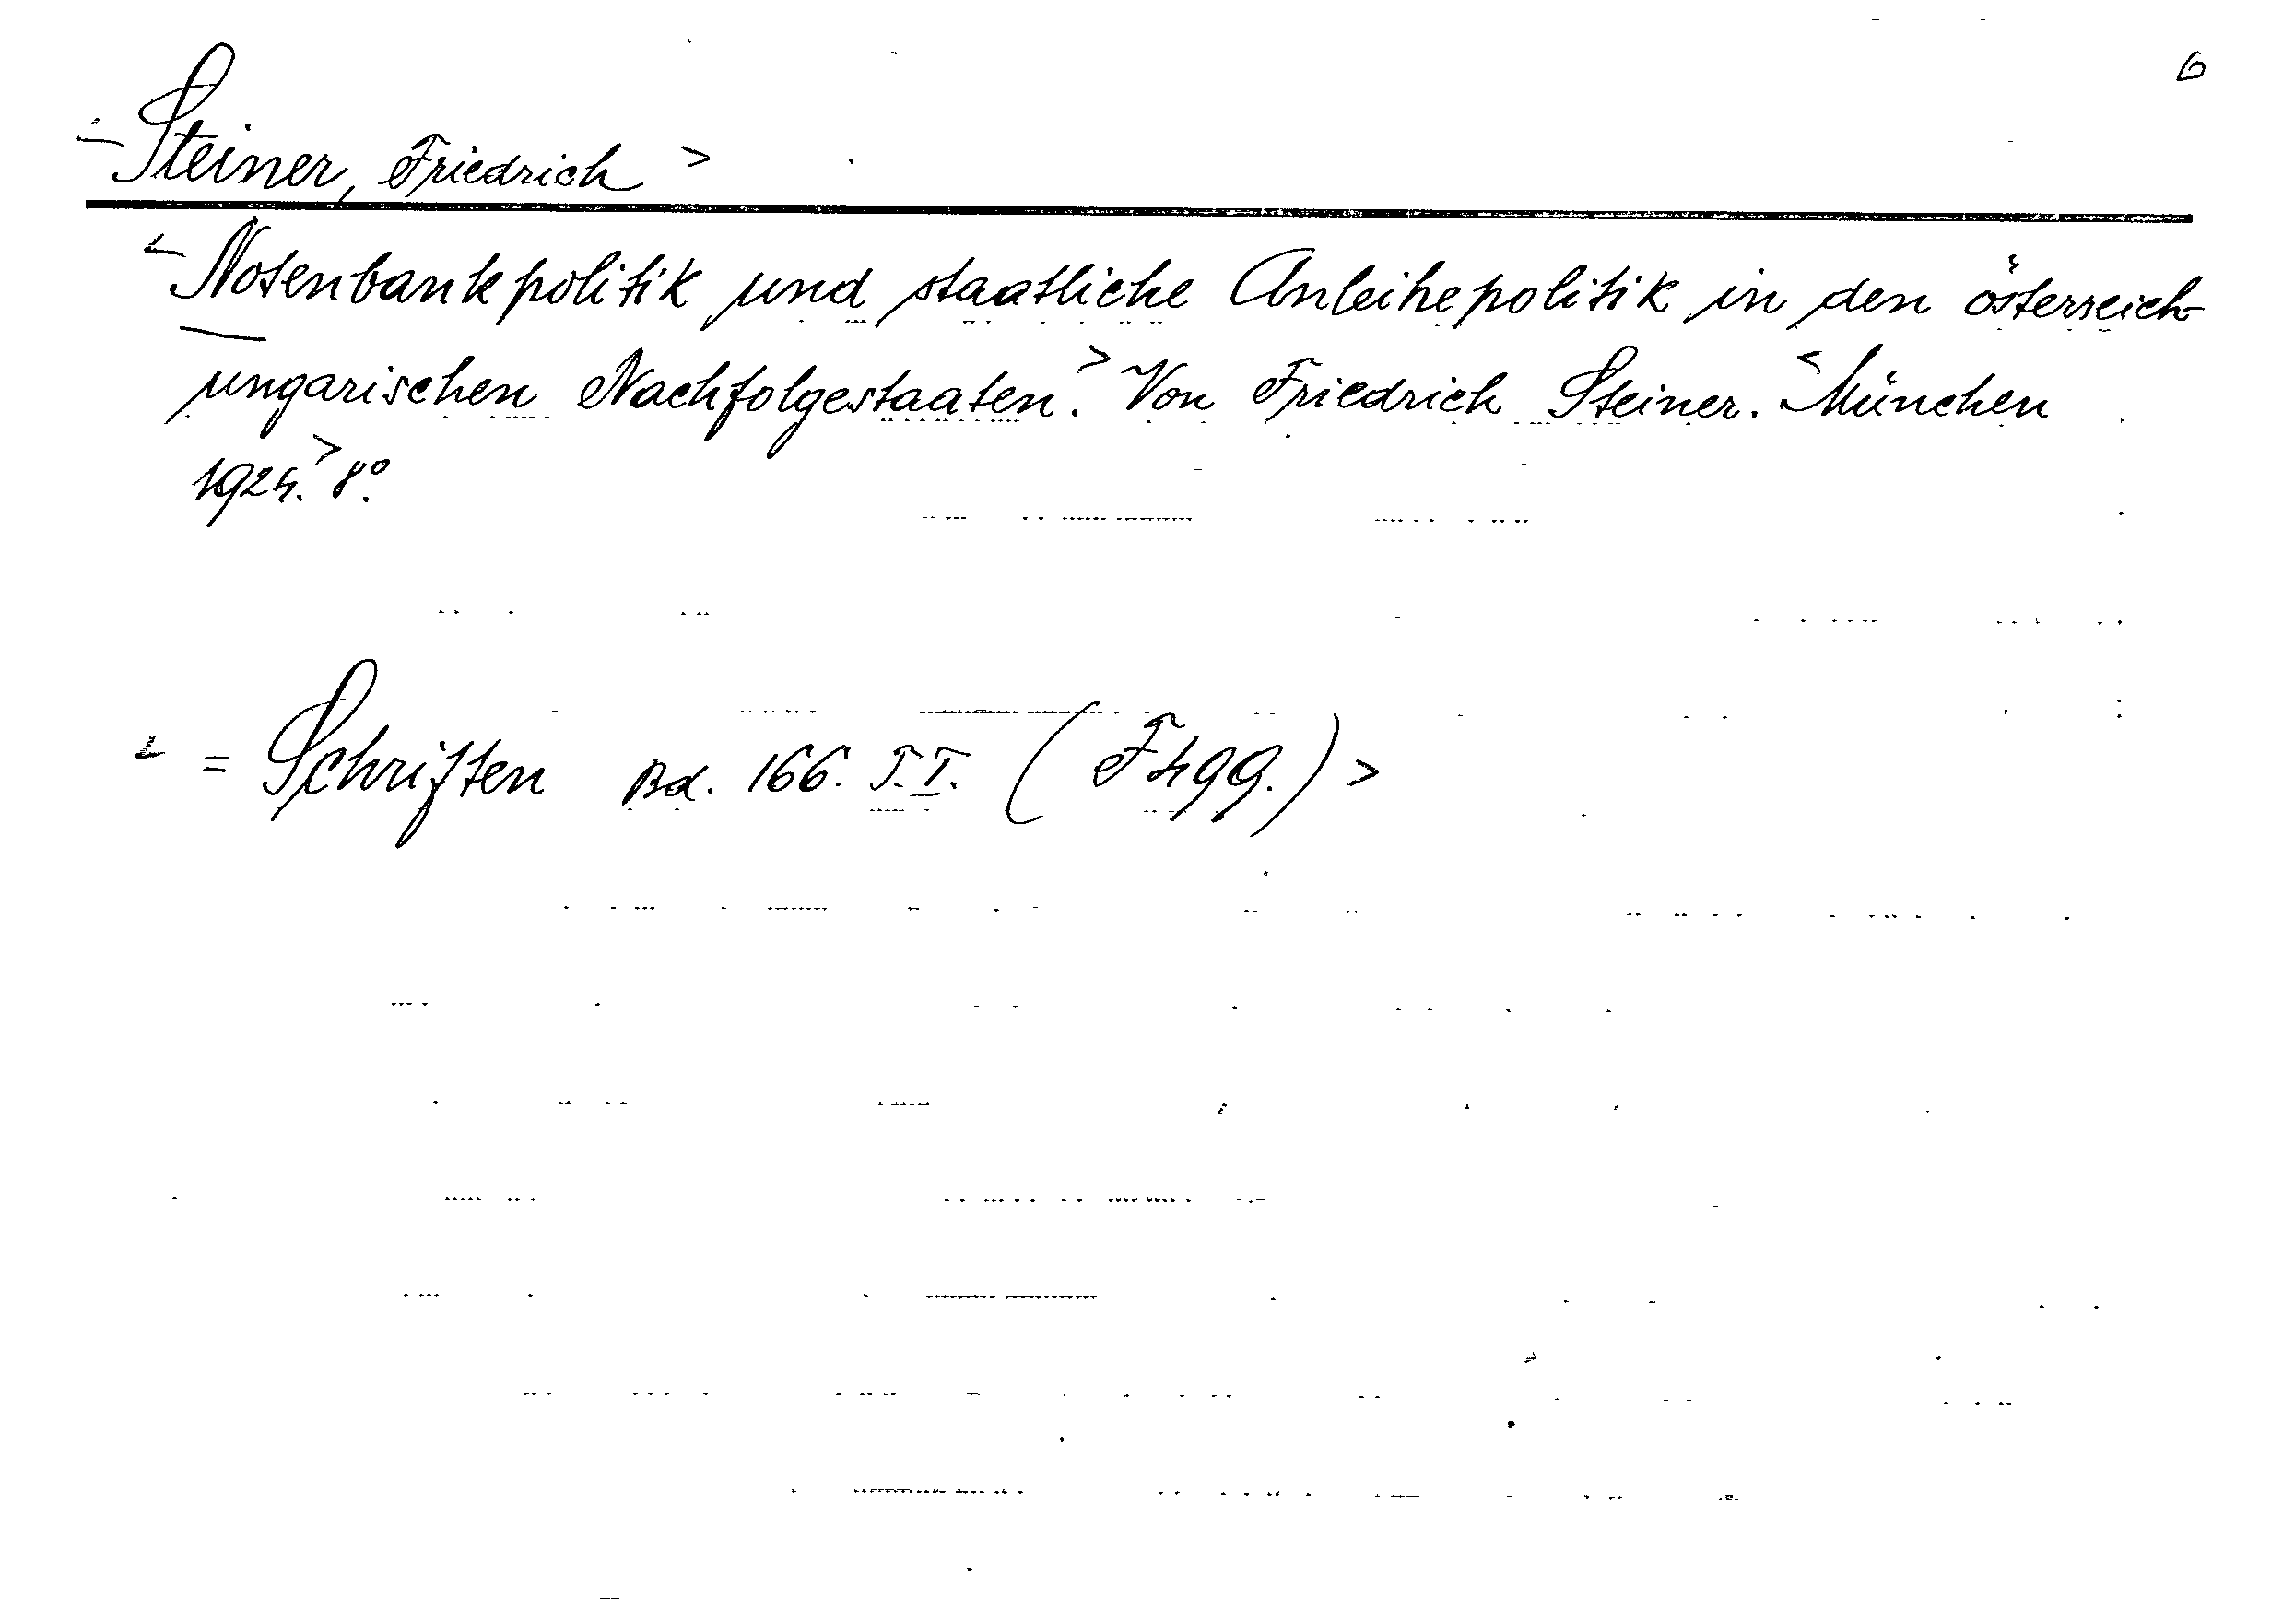 6
<Steiner, Friedrich>
<Notenbankpolitik und staatliche Anleihepolitik in den österreich-
ungarischen Nachfolgestaaten.> Von Friedrich Steiner. <München
1924.> 8°.
< = Schriften Bd. 166. T.I. (F499.)>